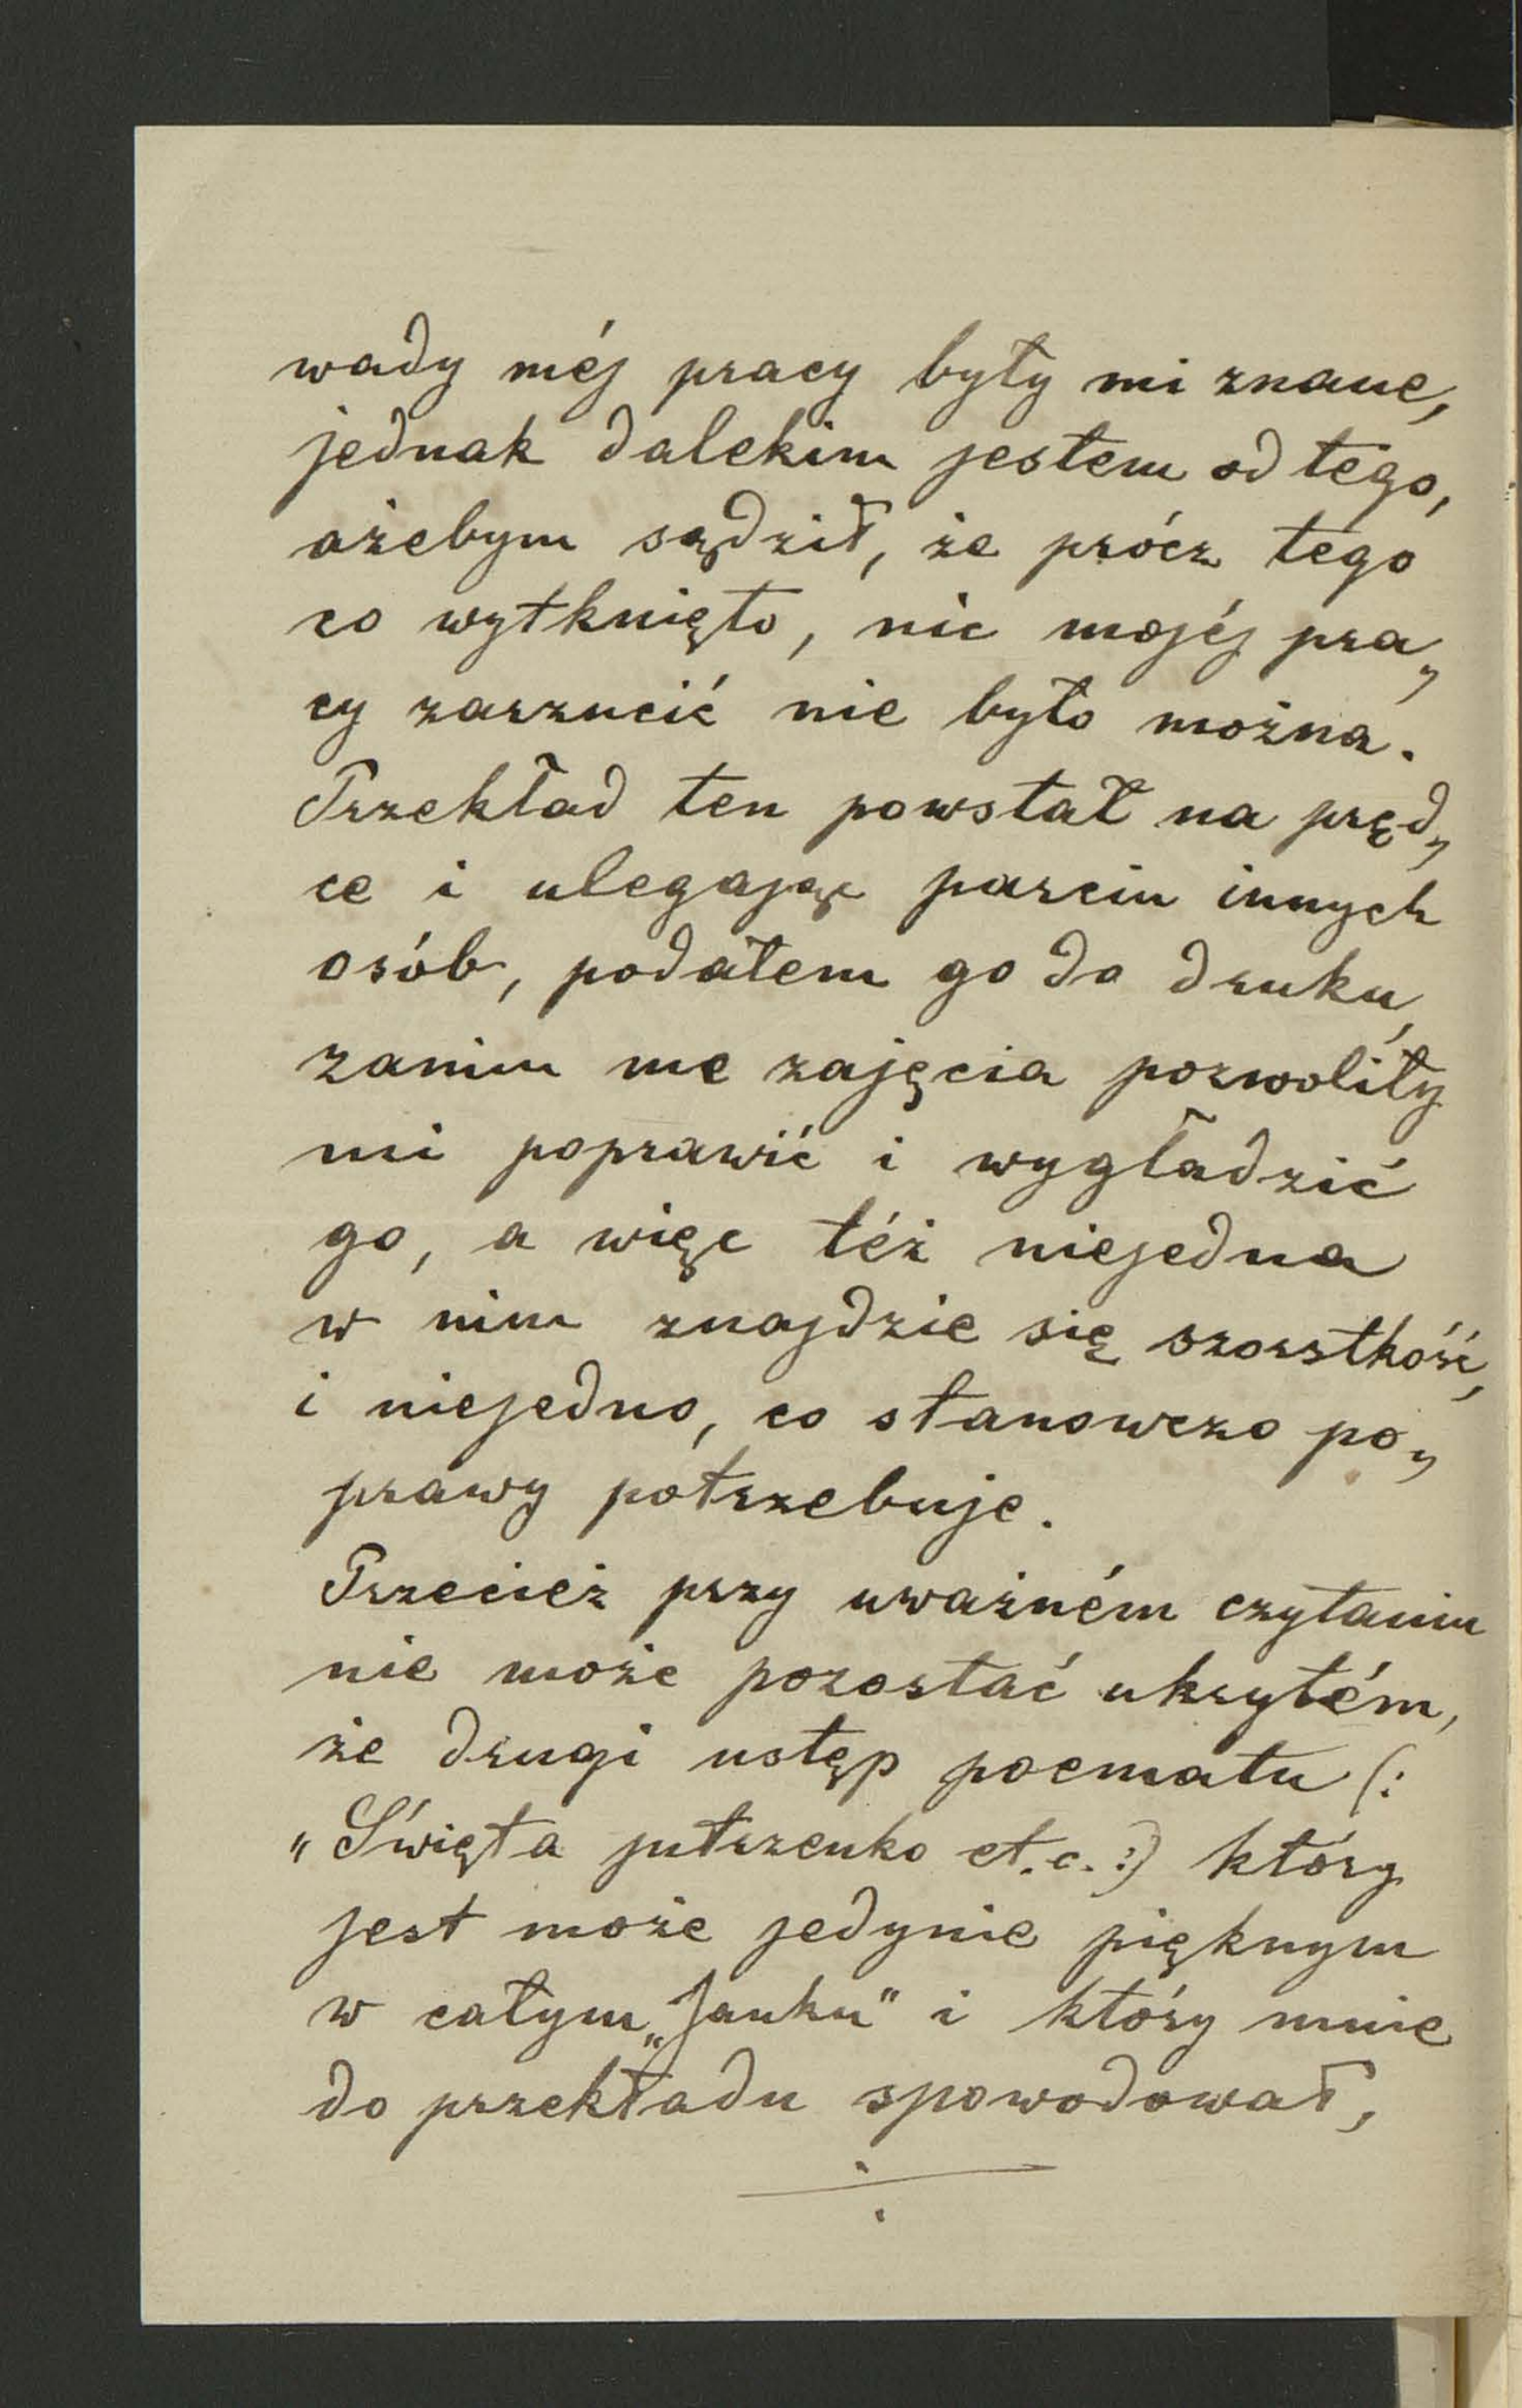 wady méj pracy były mi znane,
jednak dalekim jestem od tego,
ażebym sądził, że prócz tego
co wytknięto, nic mojéj pra„
cy zarzucić nie było można.
Przekład ten powstał na pręd„
ce i ulegając parciu innych
osób, podałem go do druku,
zanim me zajęcia pozwoliły
mi poprawić i wygładzić
go, a więc téż niejedna
w nim znajdzie się szorstkość,
i niejedno, co stanowczo po„
prawy potrzebuje.
Przecież przy uważném czytaniu
nie może pozostać ukrytém,
że drugi ustęp poematu (:
„Święta jutrzenko et.c.:) który
jest może jedynie pięknym
w całym „Janku" i który mnie
do przekładu spowodował,